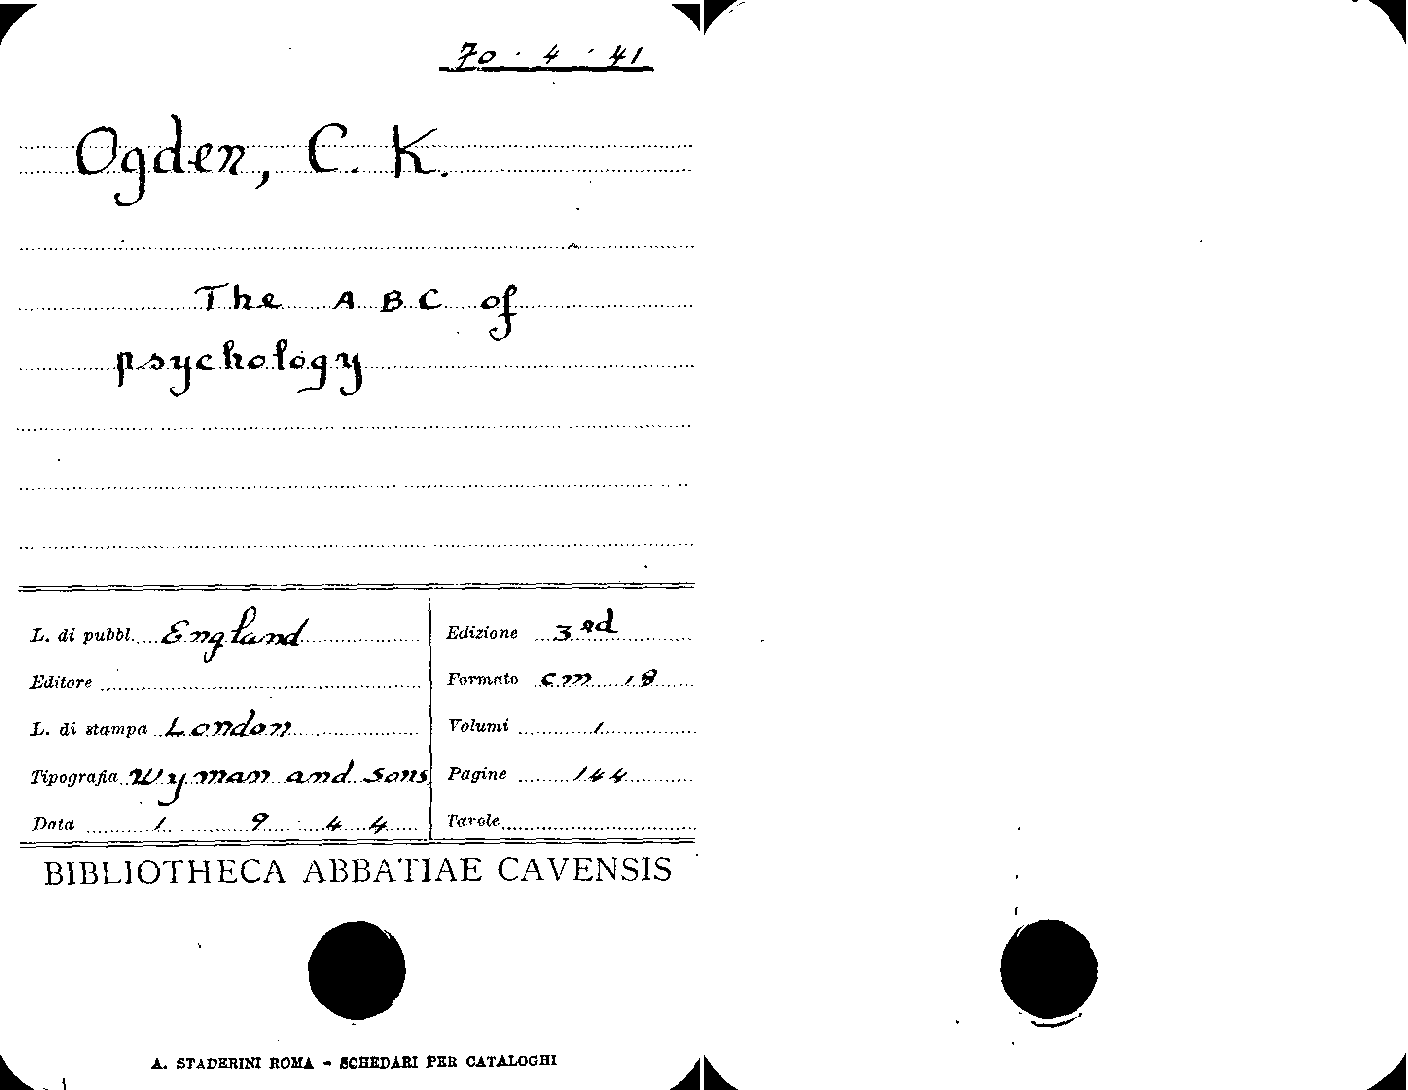 70 · 4 · 41
Ogden, C. K.
The A B C of
psychology
L. di pubbl. England
Editore
L. di stampa London
Tipografia Wyman and Sons
Data 1 9 4 4
Edizione 3rd
Formato cm 18
Volumi 1
Pagine 144
Tavole
BIBLIOTHECA ABBATIAE CAVENSIS
A. STADERINI ROMA - SCHEDARI PER CATALOGHI